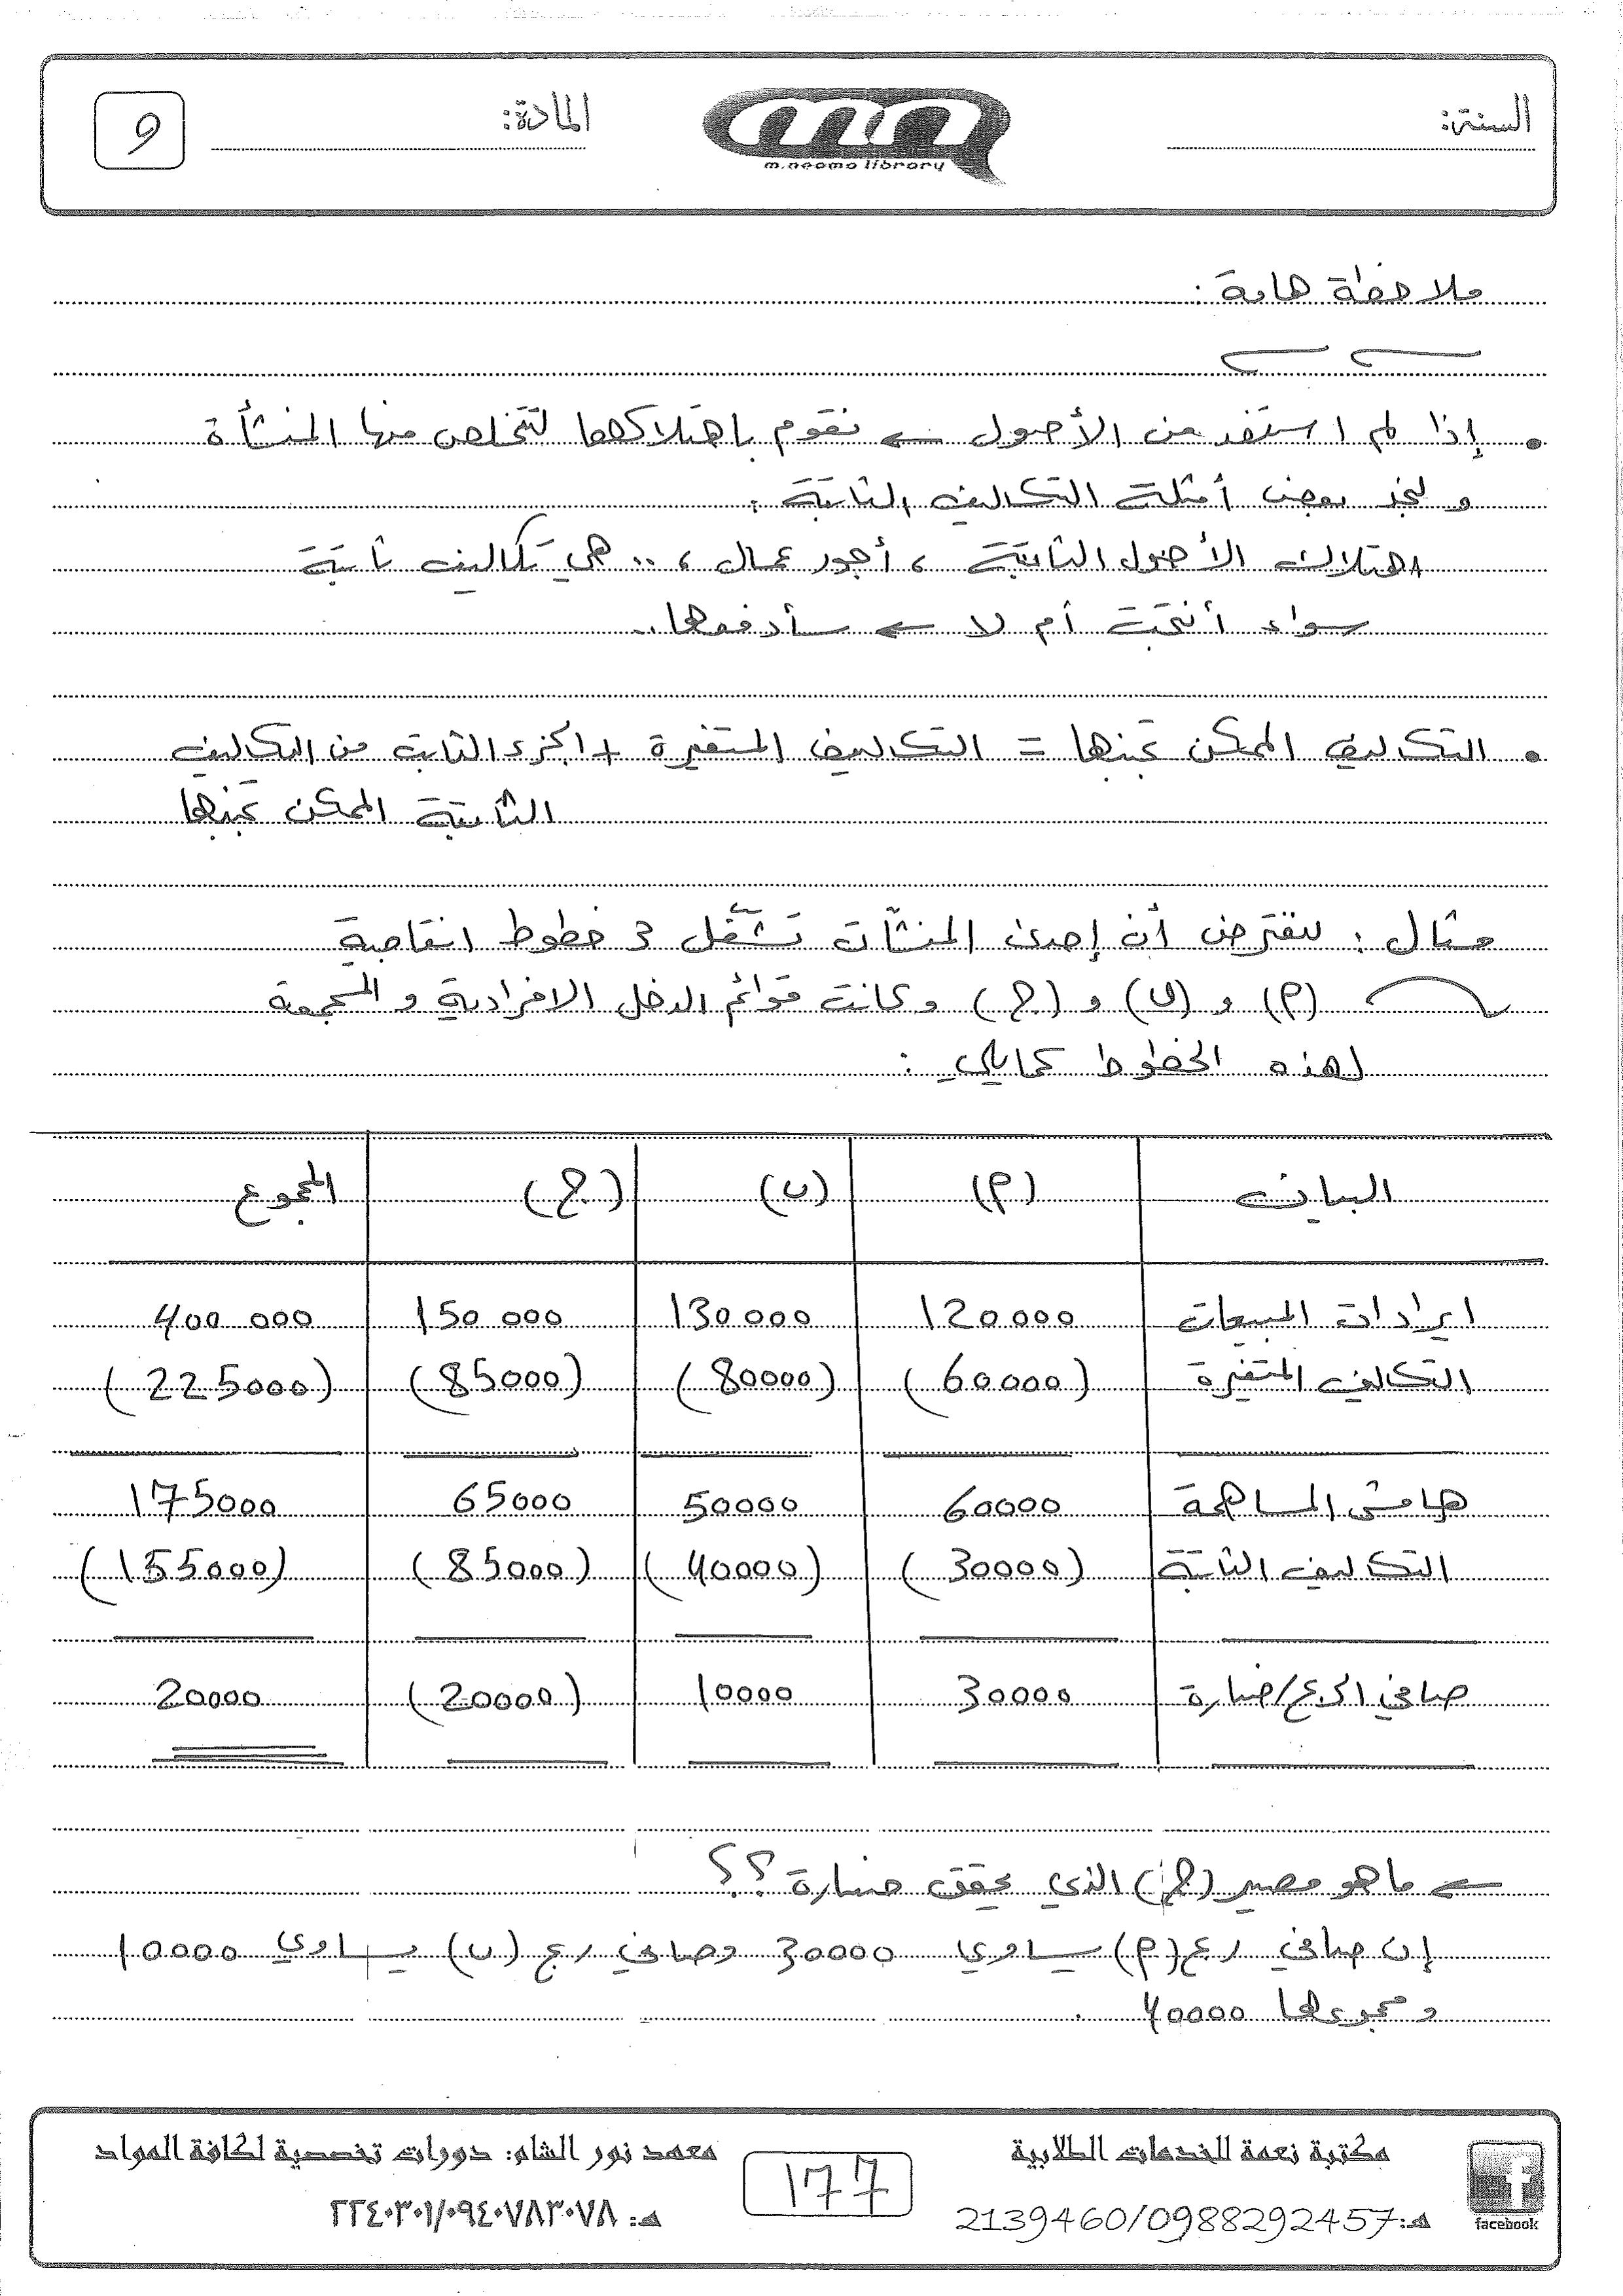 السنة:
m.neema library
المادة:
9
ملاحظة هامة :
• إذا لم استفد من الأصول ← نقوم باهتلاكها لتتخلص منها المنشأة
و لنجد بعض أمثلة التكاليف الثابتة :
اهتلاك الأصول الثابتة ، أجور عمال ، .. هي تكاليف ثابتة
سواء أنتجت أم لا ← سأدفعها..
• التكاليف الممكن تجنبها = التكاليف المتغيرة + الجزء الثابت من التكاليف
الثابتة الممكن تجنبها
مثال : لنفترض أن إحدى المنشآت تشغّل 3 خطوط انتاجية
(م) و (ب) و (ج) و كانت قوائم الدخل الافرادية و المجمعة
لهذه الخطوط كمايلي :
البيان (م) (ب) (ج) المجموع
ايرادات المبيعات 120000 130000 150000 400000
التكاليف المتغيرة (60000) (80000) (85000) (225000)
هامش المساهمة 60000 50000 65000 175000
التكاليف الثابتة (30000) (40000) (85000) (155000)
صافي الربح/خسارة 30000 10000 (20000) 20000
← ما هو مصير (ج) الذي يحقق خسارة ؟؟
إن صافي ربح (م) يساوي 30000 وصافي ربح (ب) يساوي 10000
و مجموعها 40000 .
مكتبة نعمة للخدمات الطلابية
هـ: 2139460/0988292457
facebook
177
معهد نور الشام: دورات تخصصية لكافة المواد
هـ: ٢٢٤٠٣٠١/٠٩٤٠٧٨٣٠٧٨